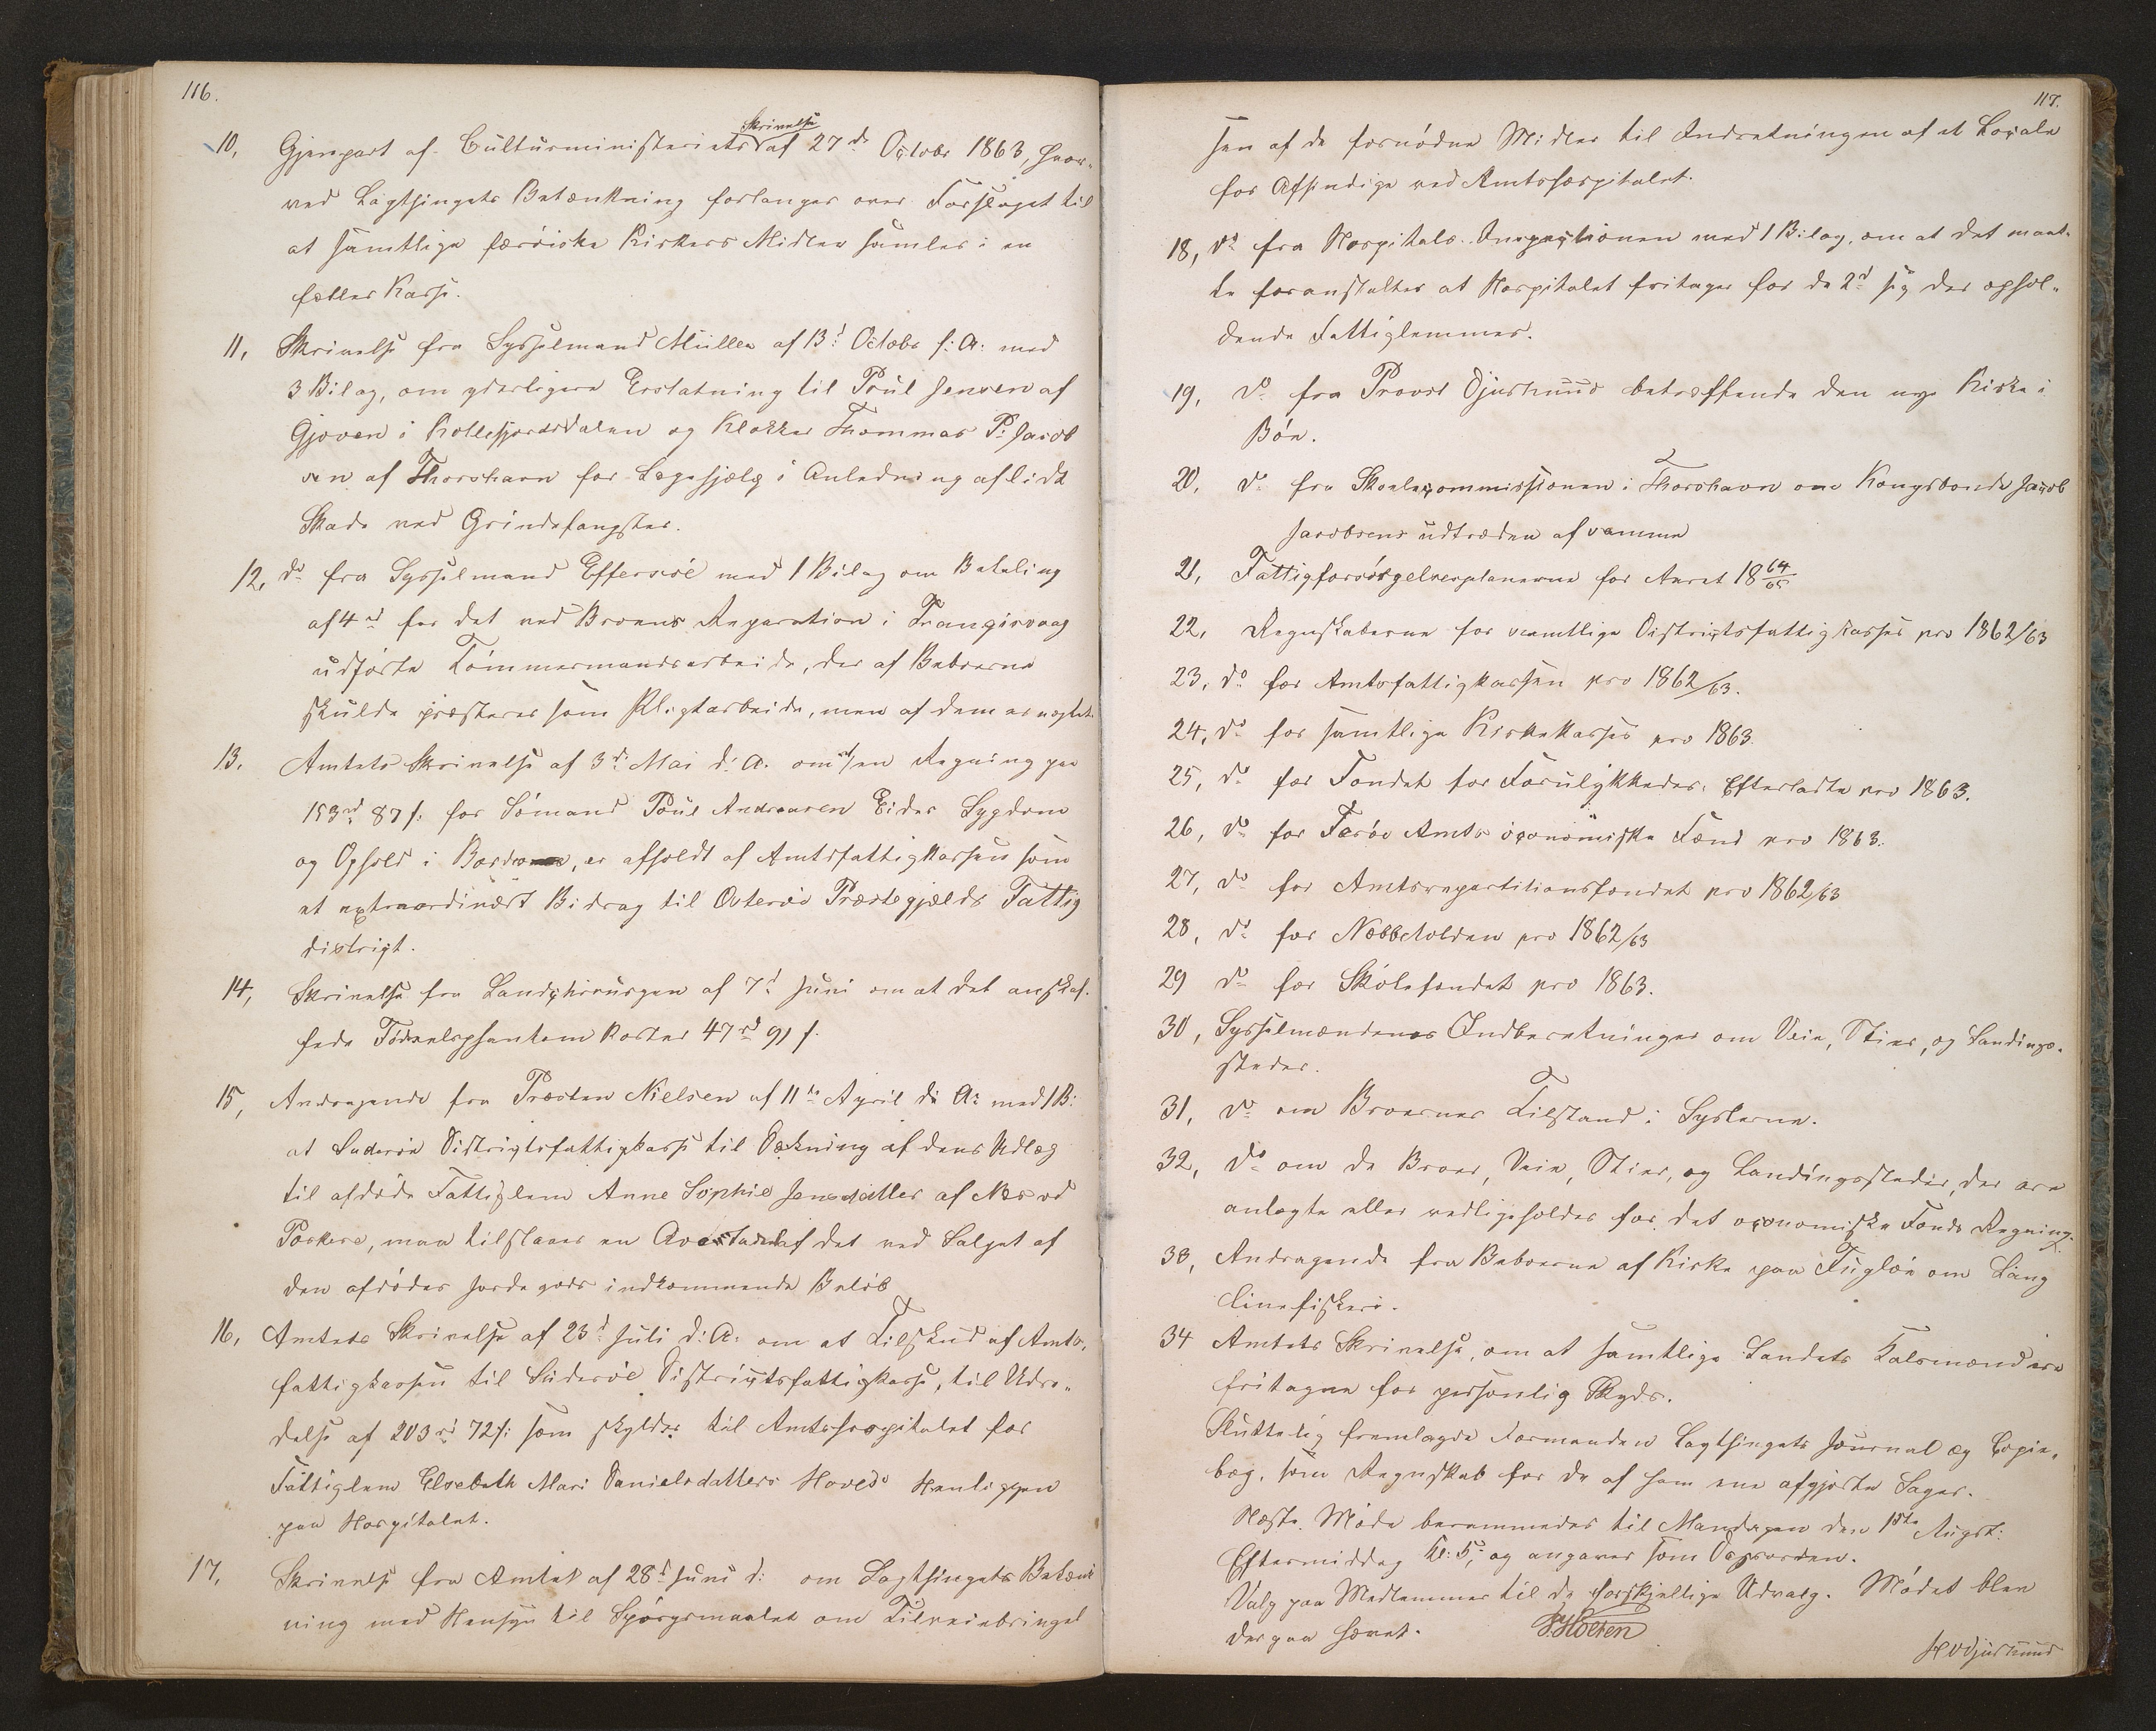 116.
10, Gjenpart af Culturministeriets Skrivelse af 27de Octobr 1863, hvor-
ved Lagthingets Betænkning forlanges over Forslaget til
at samtlige færöiske Kirkers Midler samles i en
fælles Kasse.
11, Skrivelse fra Sysselmand Müller af 13d Octobr f. A. med
3 Bilag, om yderligere Erstatning til Poul Jensen af
Gjoven i Kollefjordsdalen og Klokker Thommas P. Jacob
sen af Thorshavn for Lægehjælp i Anledning af lidt
Skade ved Grindefangster.
12, do fra Sysselmand Effersöe med 1 Bilag om Betaling
af 4 rd for det ved Broens Reparation i Trangisvaag
udförte Tömmermandsarbeide, der af Beboerne
skulde præsteres som Pligtarbeide, men af dem er nægtet.
13. Amtets Skrivelse af 3d Mai d. A. om at en Regning paa
153 rd 87 s. for Sömand Poul Andreasen Eides Sygdom
og Ophold i, er afholdt af Amtsfattigkassen som
et extraordinært Bidrag til Osterö Præstegjælds Fattig
district.
14, Skrivelse fra Landchirurgen af 7d Juni om at det anskaf-
fede Födselsphantom koster 47 rd 91 s.
15, Andragende fra Præsten Nielsen af 11te April d. A. med 1 B.
at Suderöe Districtsfattigkasse til Dækning af dens Udlæg
til afdöde Fattiglem Anne Sophie Jensdatter af Nes ved
Porkere, maa tilstaaes en af det ved Salget af
den afdödes Jordegods indkommende Belöb
16, Amtets Skrivelse af 23d Juli d. A. om et Tilskud af Amts-
fattigkassen til Süderöe Districtsfattigkasse, til Udre-
delse af 203 rd 72 s. som skyldes til Amtshospitalet for
Fattiglem Elsebeth Mari Danielsdatters Hoveds Henliggen
paa Hospitalet.
17, Skrivelse fra Amtet af 28d Juni d. om Lagthingets Betænk
ning med Hensyn til Spörgsmaalet om Tilveiebringel
117.
sen af de fornödne Midler til Indretningen af et Locale
for Afsindige ved Amtshospitalet.
18, do fra Hospitals Inspectionen med 1 Bilag, om at det maat-
te foranstaltes at Hospitalet fritages for de 2d sig der ophol-
dende Fattiglemmer.
19, do fra Provst Djurhuus betræffende den nye Kirke i
Böe.
20, do fra Skolecommissionen i Thorshavn om Kongsbonde Jacob
Jacobsens udtræden af samme
21, Fattigforsörgelsesplanerne for Aaret 18 64/65
22, Regnskaberne for samtlige Districtsfattigkasser pro 1862/63
23, do for Amtsfattigkassen pro 1862/63.
24, do for samtlige Kirkekasser pro 1863.
25, do for Fondet for Forulykkedes Efterladte pro 1863.
26, do for Færöe Amts öconomiske Fond pro 1863.
27, do for Amtsrepartitionsfondet pro 1862/63
28, do for Næbbetolden pro 1862/63
29 do for Skolefondet pro 1863.
30, Sysselmændenes Indberetninger om Veie, Stier, og Landings-
steder.
31, do om Broernes Tilstand i Syslerne.
32, do om de Broer, Veie, Stier, og Landingssteder, der ere
anlagte eller vedligeholdes for det oconomiske Fonds Regning.
33, Andragende fra Beboerne af Kirke paa Fuglöe om Lang
linefiskeri.
34 Amtets Skrivelse, om at samtlige Landets Talsmænd ere
fritagne for personlig Skyds.
Sluttelig fremlagde Formanden Lagthingets Journal og Copie-
bog, som Regnskab for de af ham ene afgjorte Sager.
Næste Möde berammedes til Mandagen den 1ste Augst:
Eftermiddag Kl. 5, og angaves som Dagsorden.
Valg paa Medlemmer til de forskjellige Udvalg. Mödet blev
derpaa hævet.
HDjurhuus